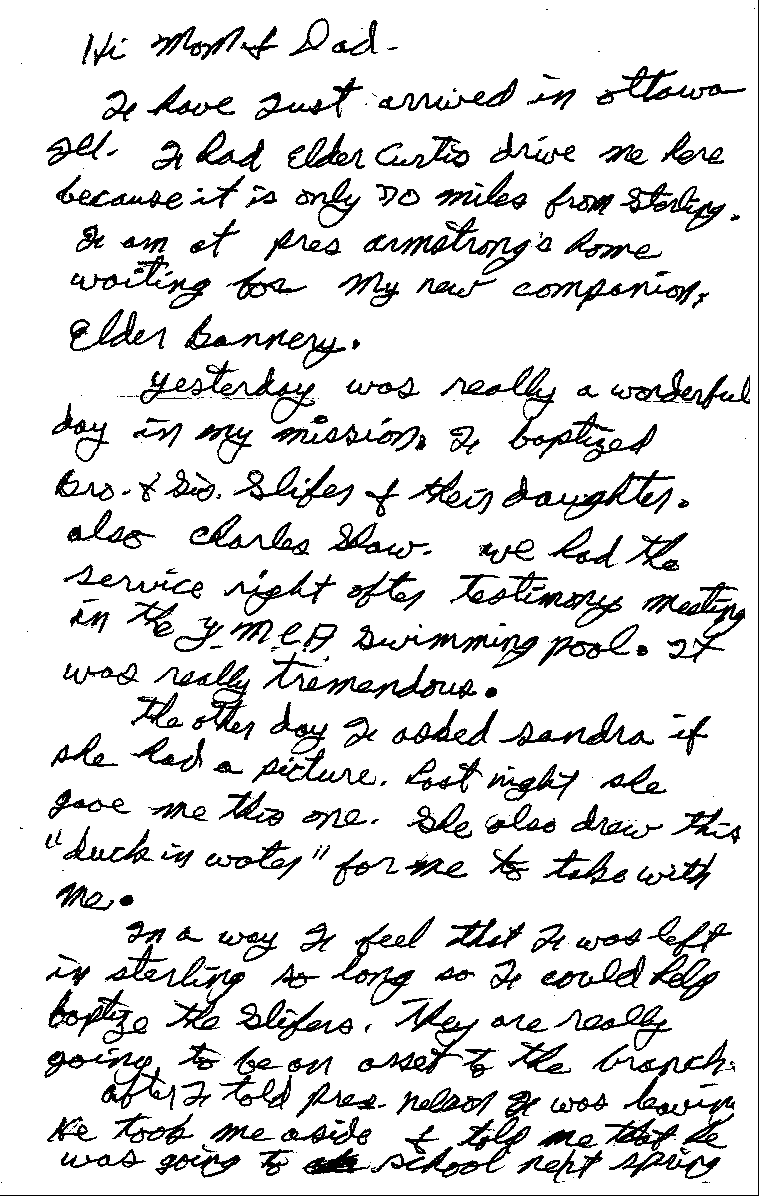 Hi Mom & Dad-
I have just arrived in Ottawa
Ill. I had Elder Curtis drive me here
because it is only 70 miles from Sterling.
I am at Pres Armstrong's home
waiting for my new companion,
Elder Bannery.
Yesterday was really a wonderful
day in my mission. I baptized
Bro. & Sis. Slifer & their daughter.
also Charles Shaw. we had the
service right after testimony meeting
in the YMCA swimming pool. It
was really tremendous.
The other day I asked Sandra if
she had a picture. Last night she
gave me this one. She also drew this
"duck in water" for me to take with
me.
In a way I feel that I was left
in Sterling so long so I could help
baptize the Slifers. They are really
going to be an asset to the branch.
after I told Pres. Nelson I was leaving
He took me aside & told me that he
was going to school next spring